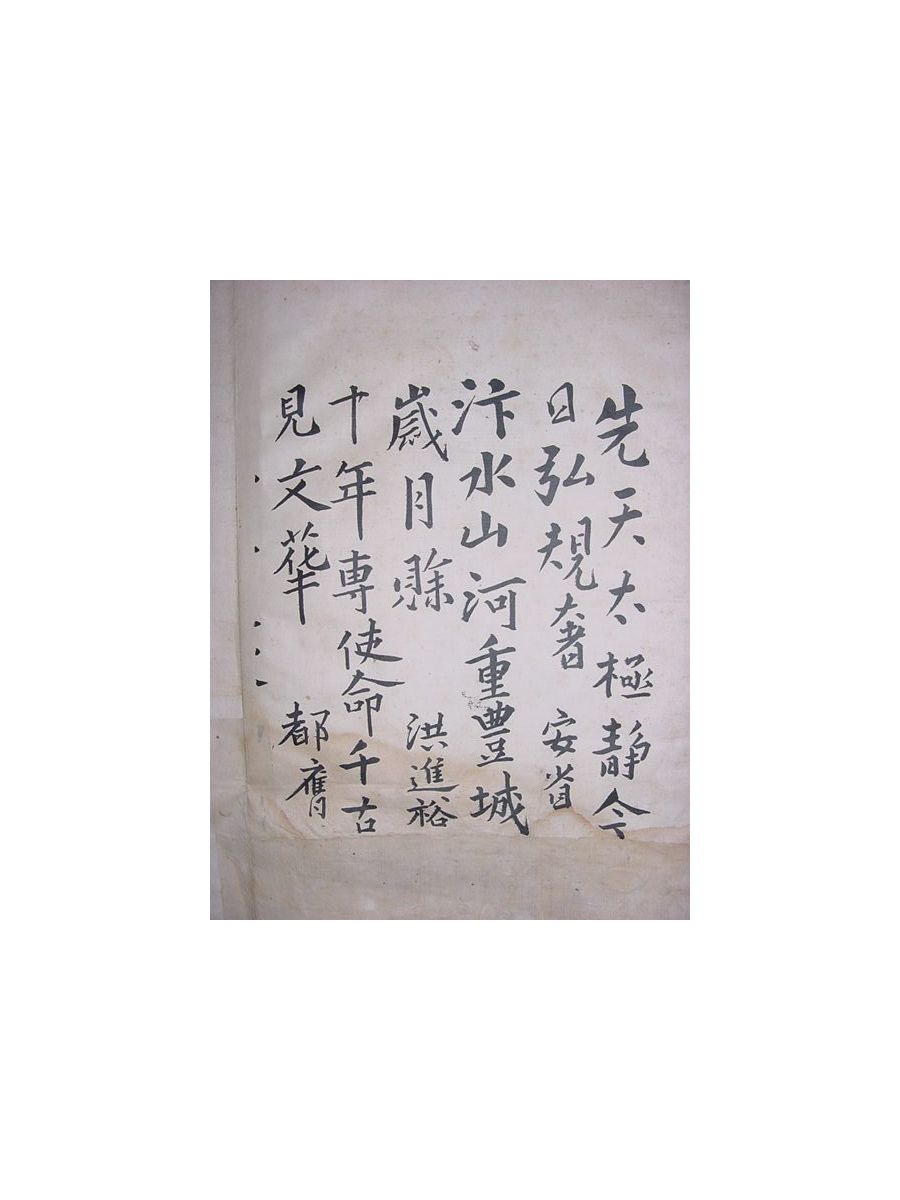 先天太極靜今
日弘規奢 安省
汴水山河重豐城
歲月賒 洪進裕
十年専使命千古
見文華 都膺